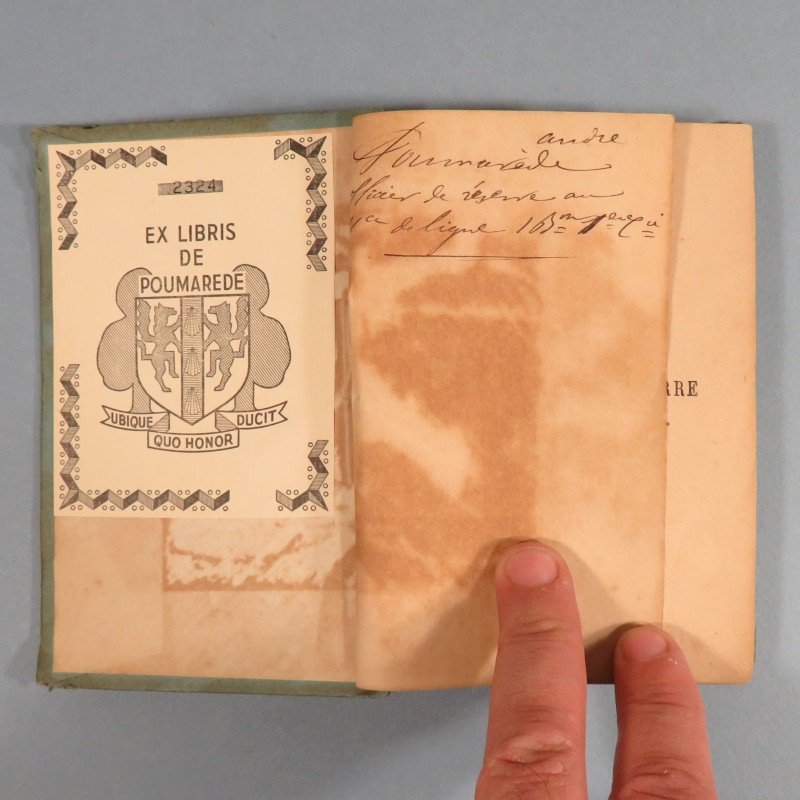 2324
EX LIBRIS
DE
POUMAREDE
UBIQUE
DUCIT
QUO HONOR
andre
Poumarède
officier de réserve au
de ligne 16
RRE